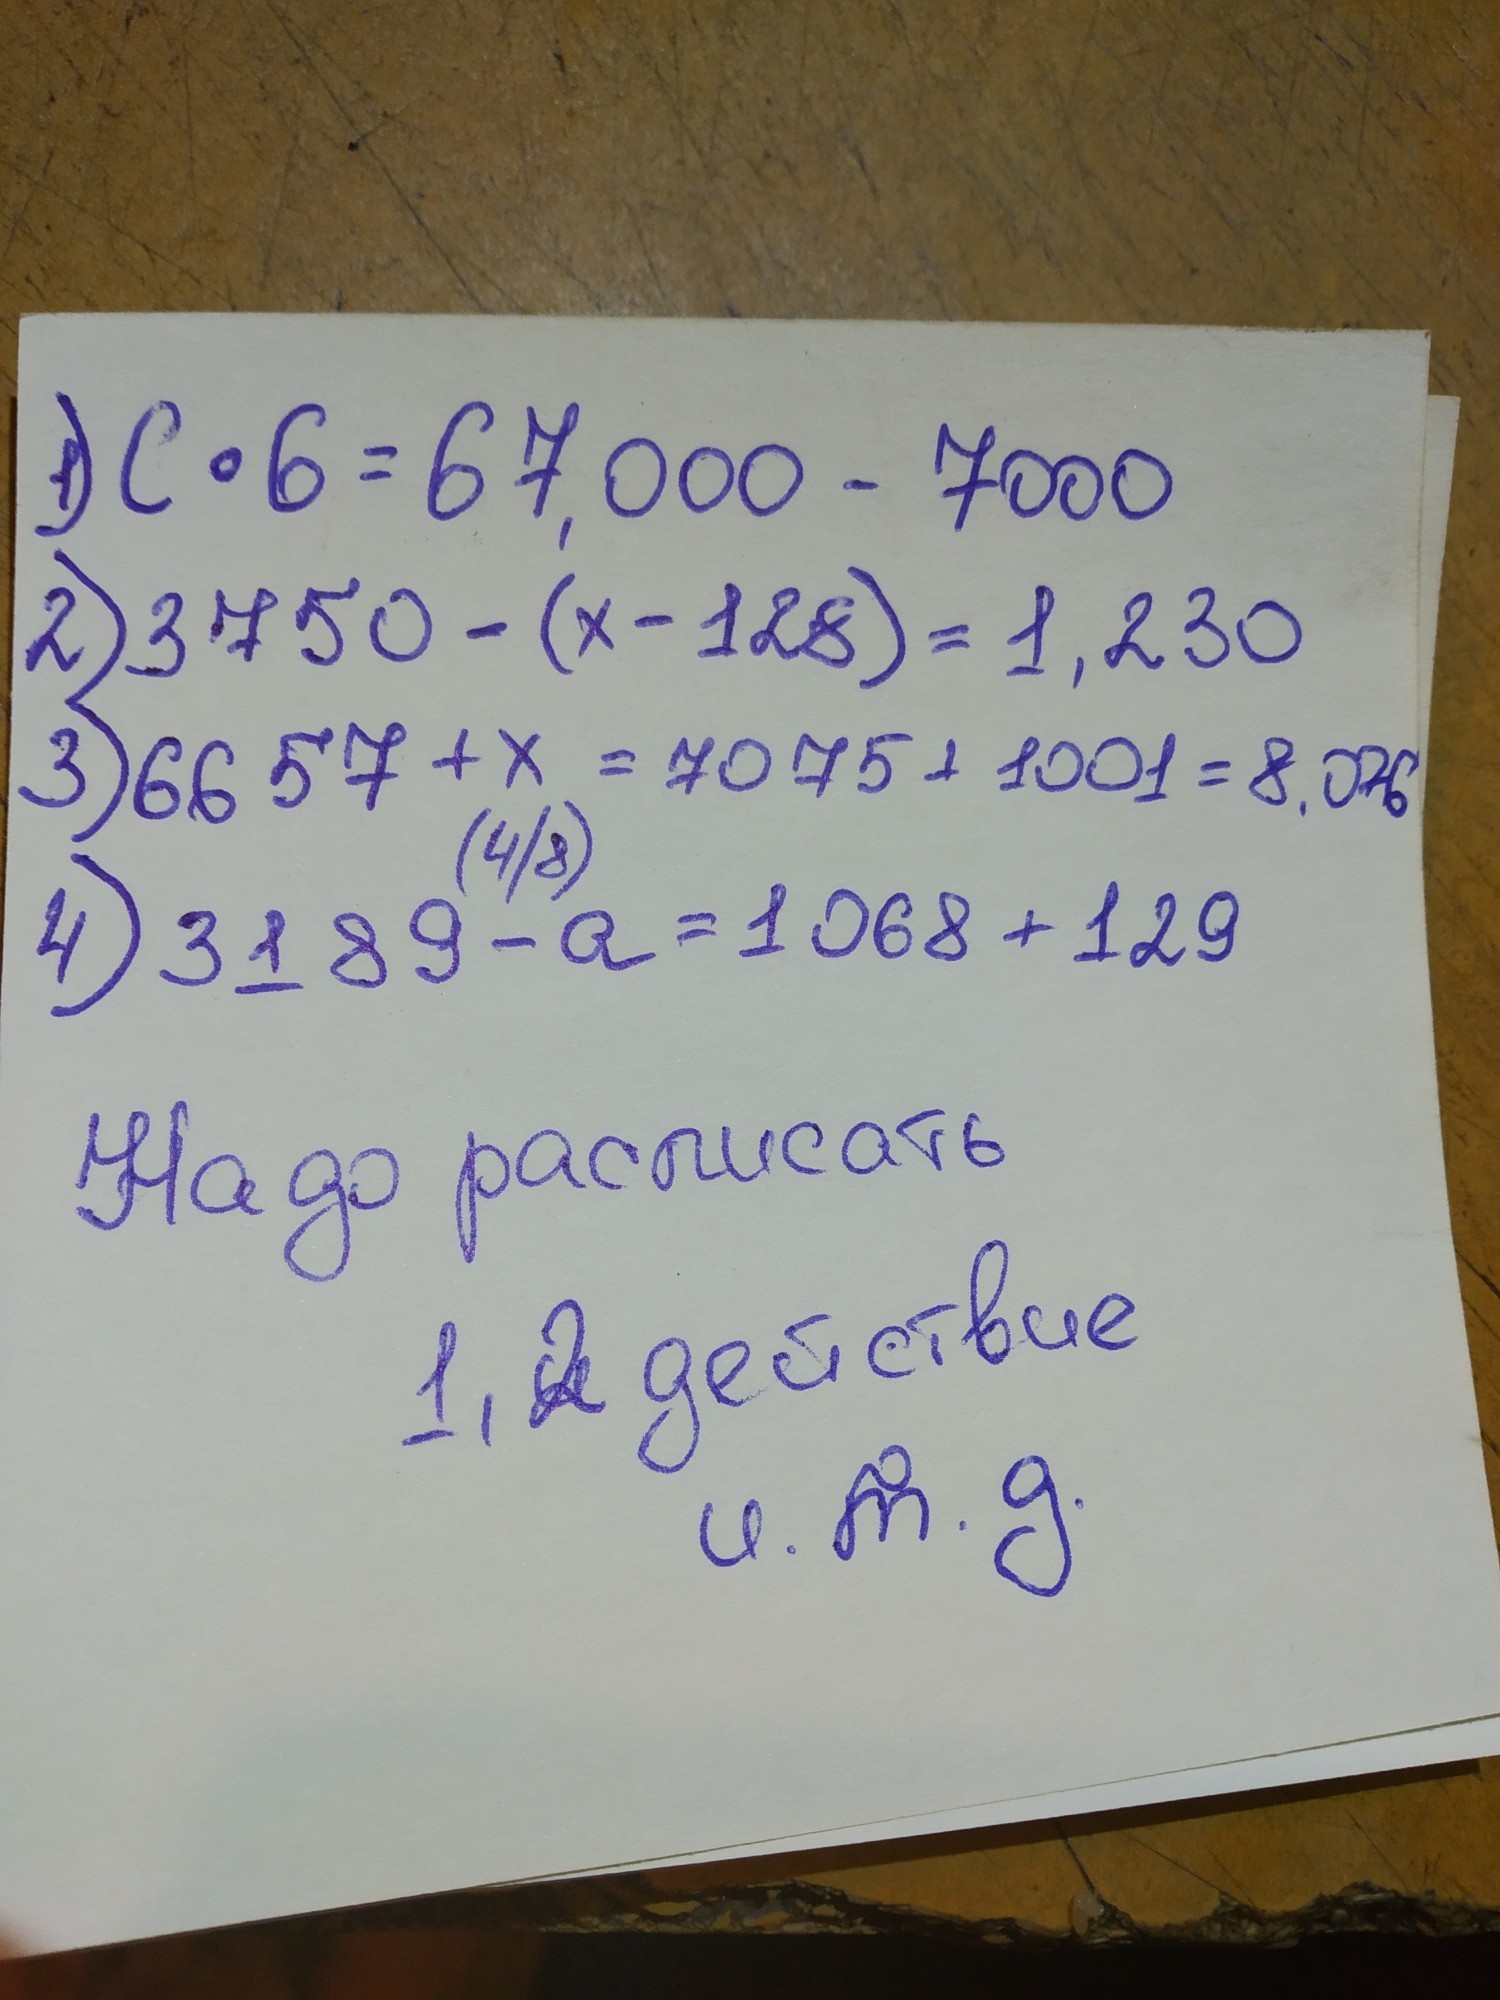 1) C · 6 = 67,000 - 7000
2) 3750 - (x - 128) = 1,230
3) 6657 + x = 7075 + 1001 = 8,076
(4/8)
4) 3189 - a = 1068 + 129
Надо расписать
1, 2 действие
и. т. д.